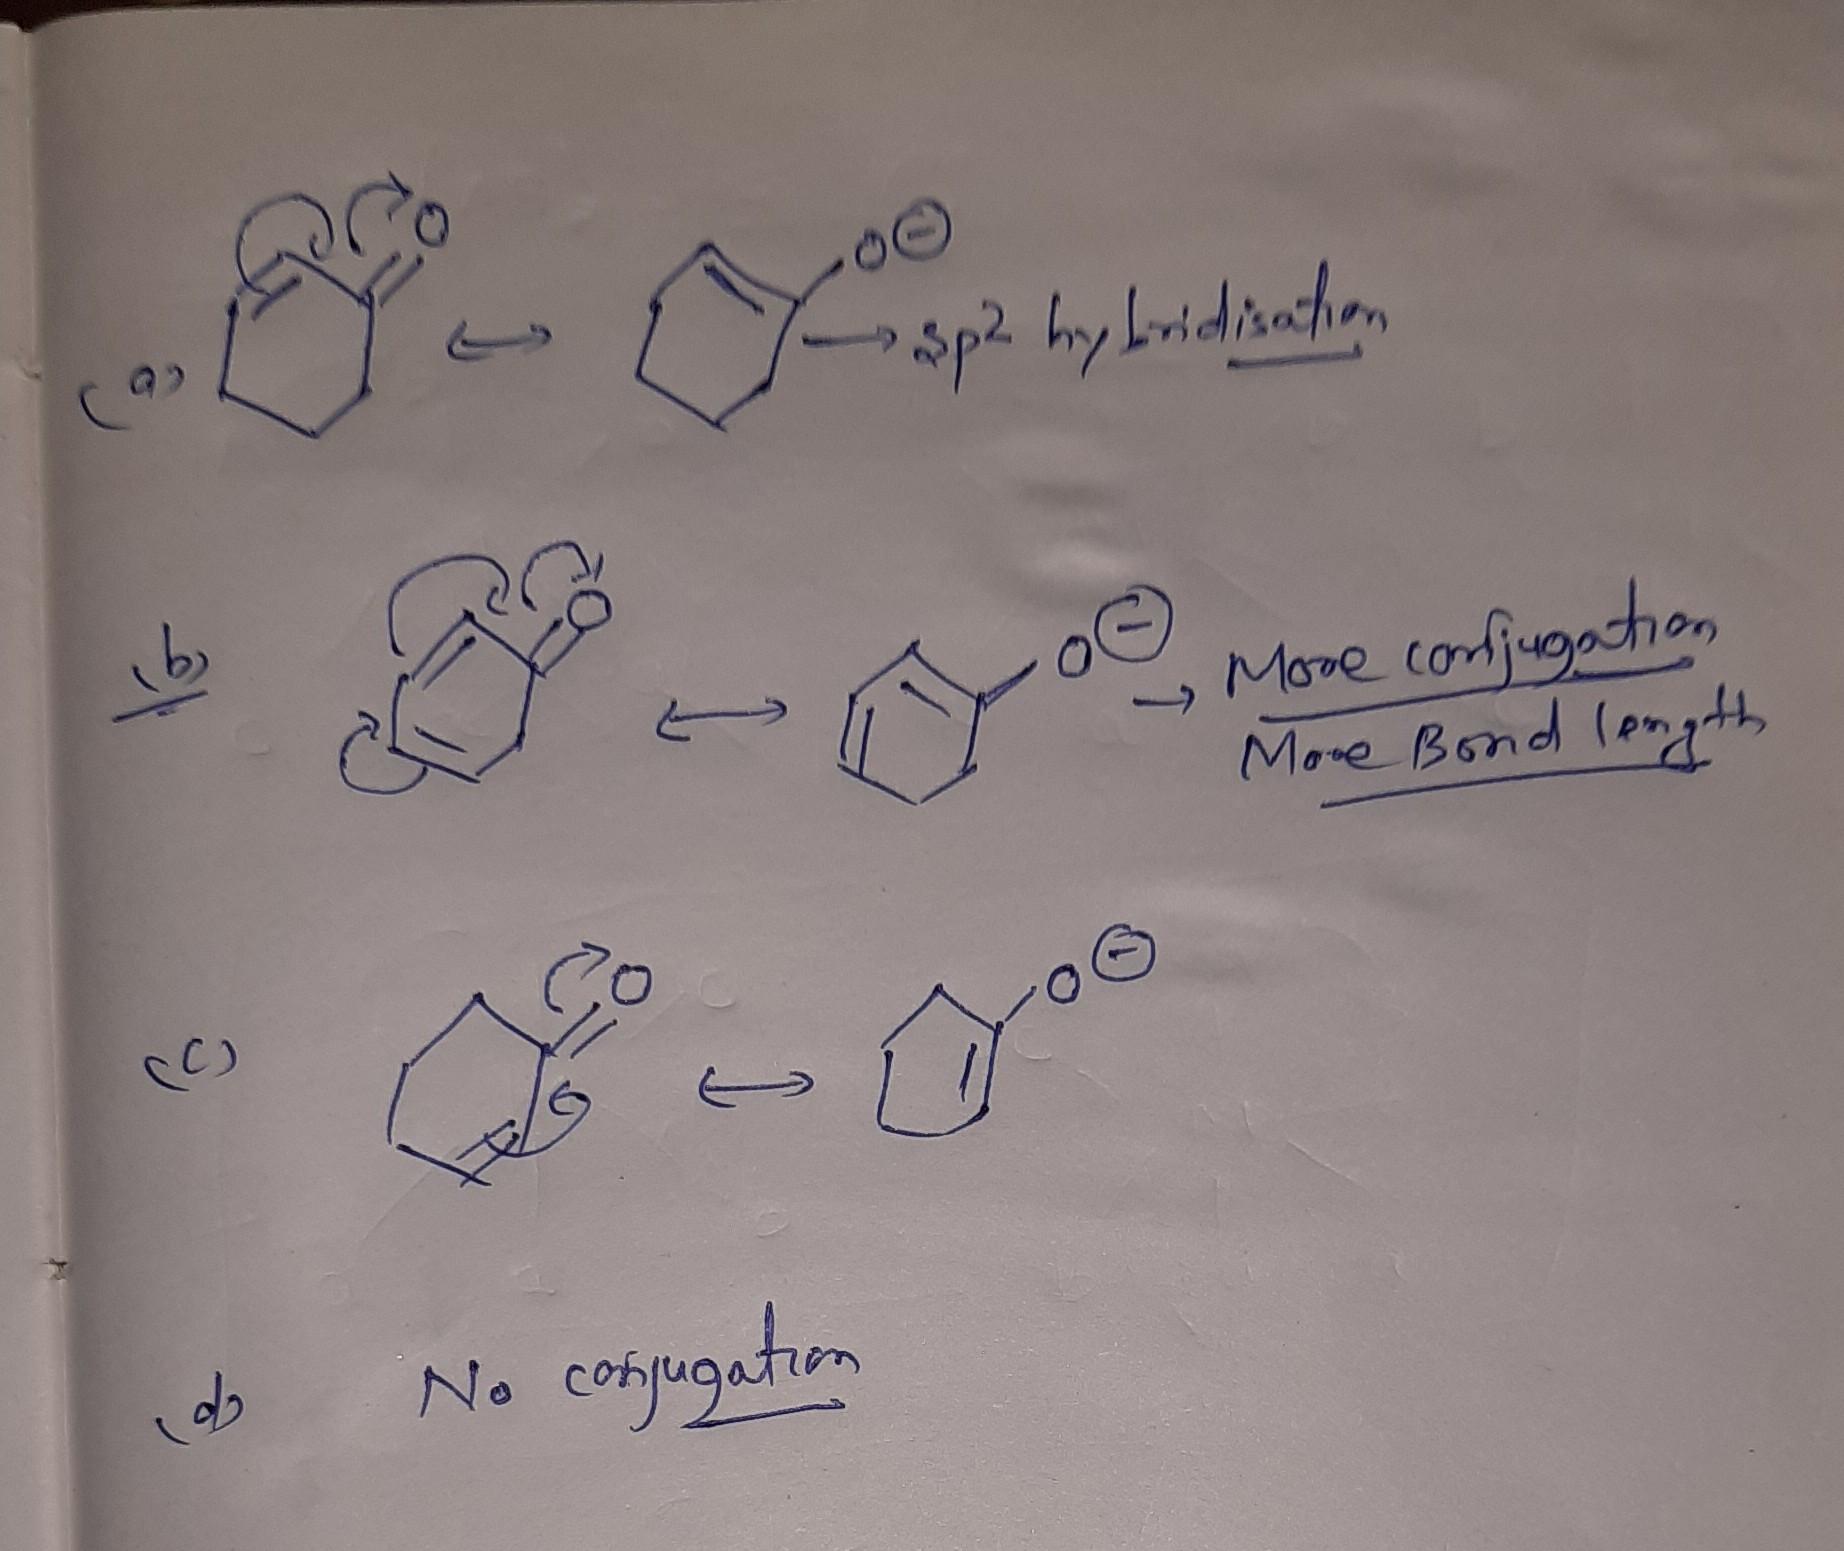 (a) O ↔ O⊖ → sp2 hybridisation
(b) O ↔ O⊖ → More conjugation
More Bond length
(c) O ↔ O⊖
(d) No conjugation